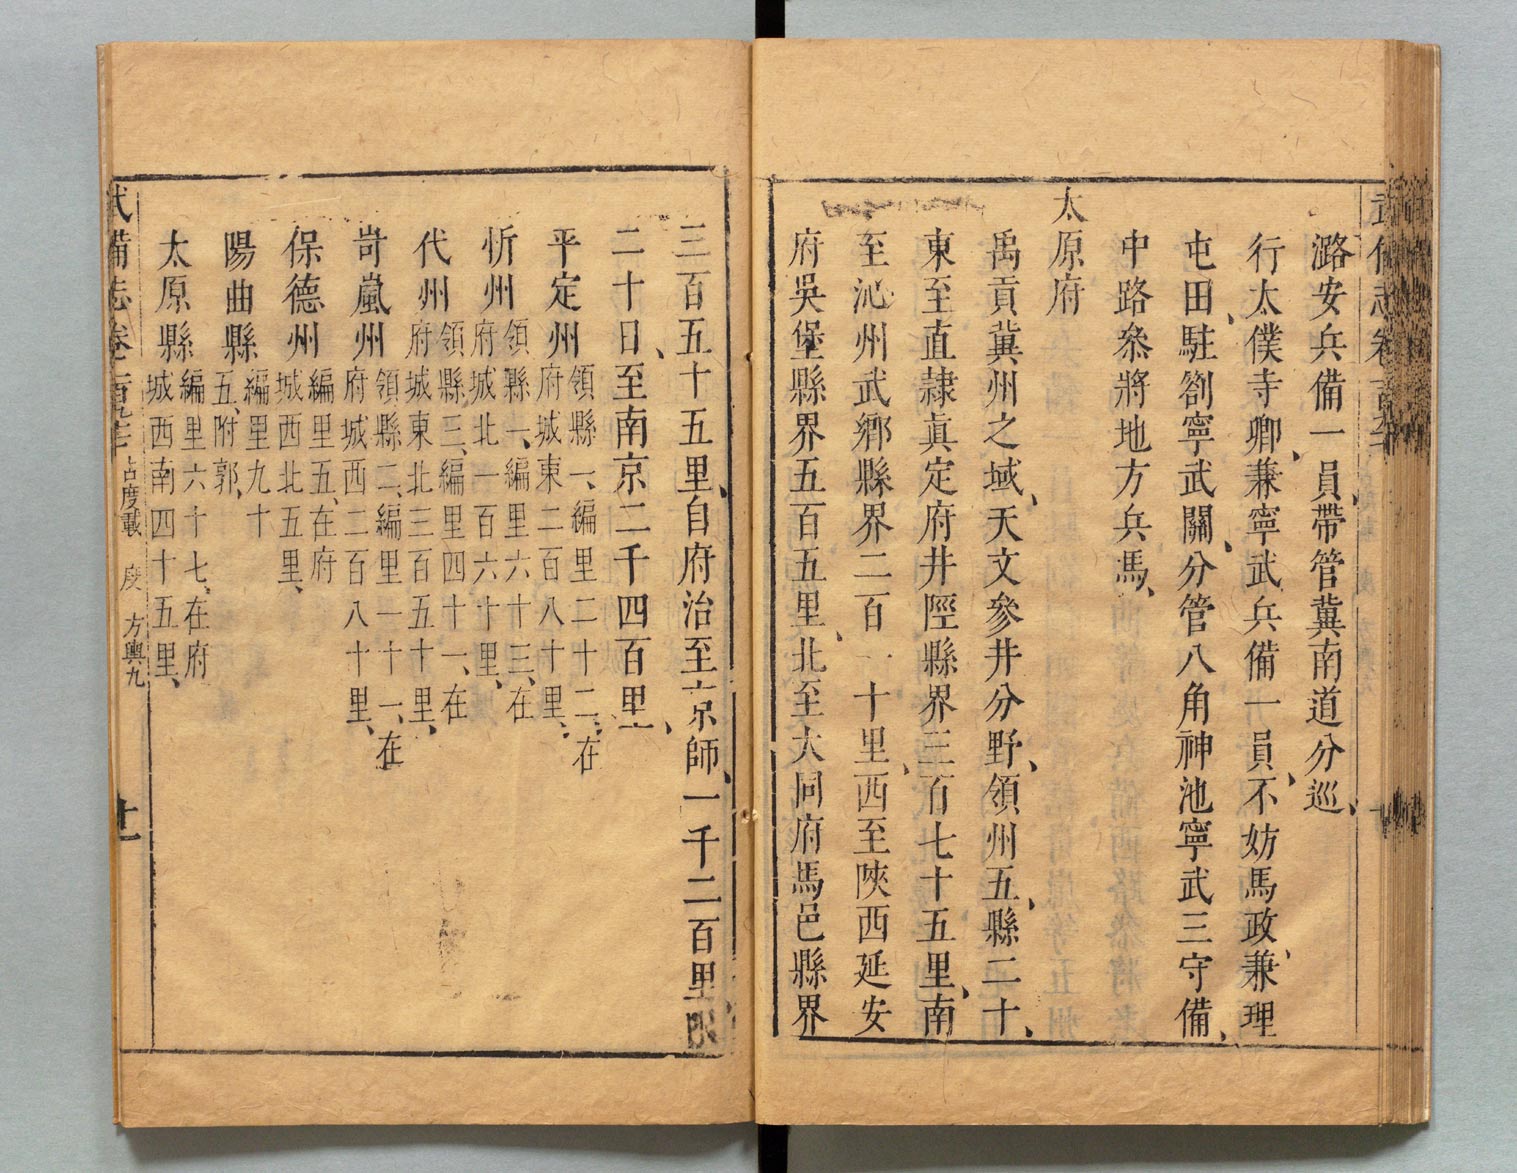 潞安兵備一員、帶管冀南道分巡、
行太僕寺卿、兼寧武兵備一員、不妨馬政、兼理
屯田、駐劄寧武關、分管八角神池寧武三守備、
中路叅將地方兵馬、
太原府
禹貢冀州之域、天文參井分野、領州五、縣二十、
東至直隸眞定府井陘縣界三百七十五里、南
至沁州武鄉縣界二百一十里、西至陜西延安
府吳堡縣界五百五里、北至大同府馬邑縣界
三百五十五里、自府治至京師、一千二百里、限
二十日、至南京二千四百里、
平定州 領縣一、編里二十二、在
府城東二百八十里、
忻州 領縣一、編里六十三、在
府城北一百六十里、
代州 領縣三、編里四十一、在
府城東北三百五十里、
岢嵐州 領縣二、編里一十一、在
府城西二百八十里、
保德州 編里五、在府
城西北五里、
陽曲縣 編里九十
五、附郭、
太原縣 編里六十七、在府
城西南四十五里、
武備志卷 占度載 度 方輿九 十一